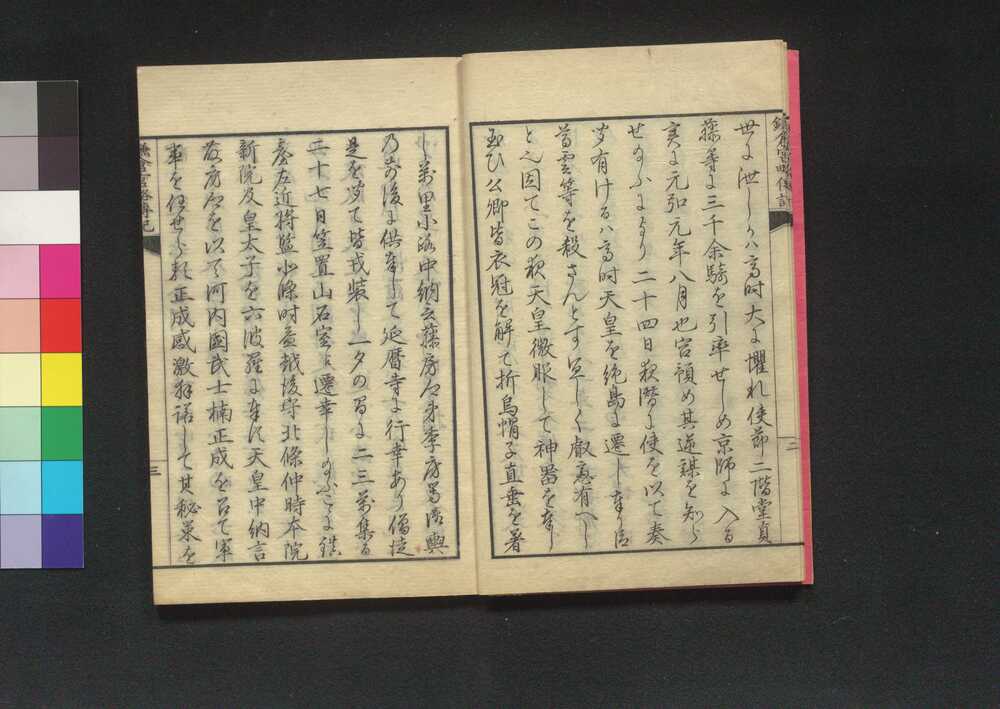 鎌倉宮略傳記
世に泄しかハ高時大に懼れ使節二階堂貞
藤等に三千余騎を引率せしめ京師に入る
実に元弘元年八月也宮預め其逆謀を知ら
せ給ふにより二十四日夜潜に使を以て奏
ゟ有ける ハ高時天皇を絶島に遷し奉り臣
尊雲等を殺さんとす宜しく叡慮有へし
と因てこの夜天皇微服して神器を奉し
玉ひ公卿皆衣冠を解て折烏帽子直垂を著
二
し萬里小路中納言藤房卿弟季房等御輿
乃前後に供奉して延暦寺に行幸あり僧徒
是を以て皆戎装し一夕の間に二三萬集る
二十七日笠置山石室に遷幸し給ふこゝに鎮
左近将監北條時益越後守北條仲時本院
新院及皇太子を六波羅に奉す天皇中納言
藤房卿を以て河内國武士楠正成を召て軍
事を任せらる正成感激拜諾して其秘策を
鎌倉宮略傳記
三